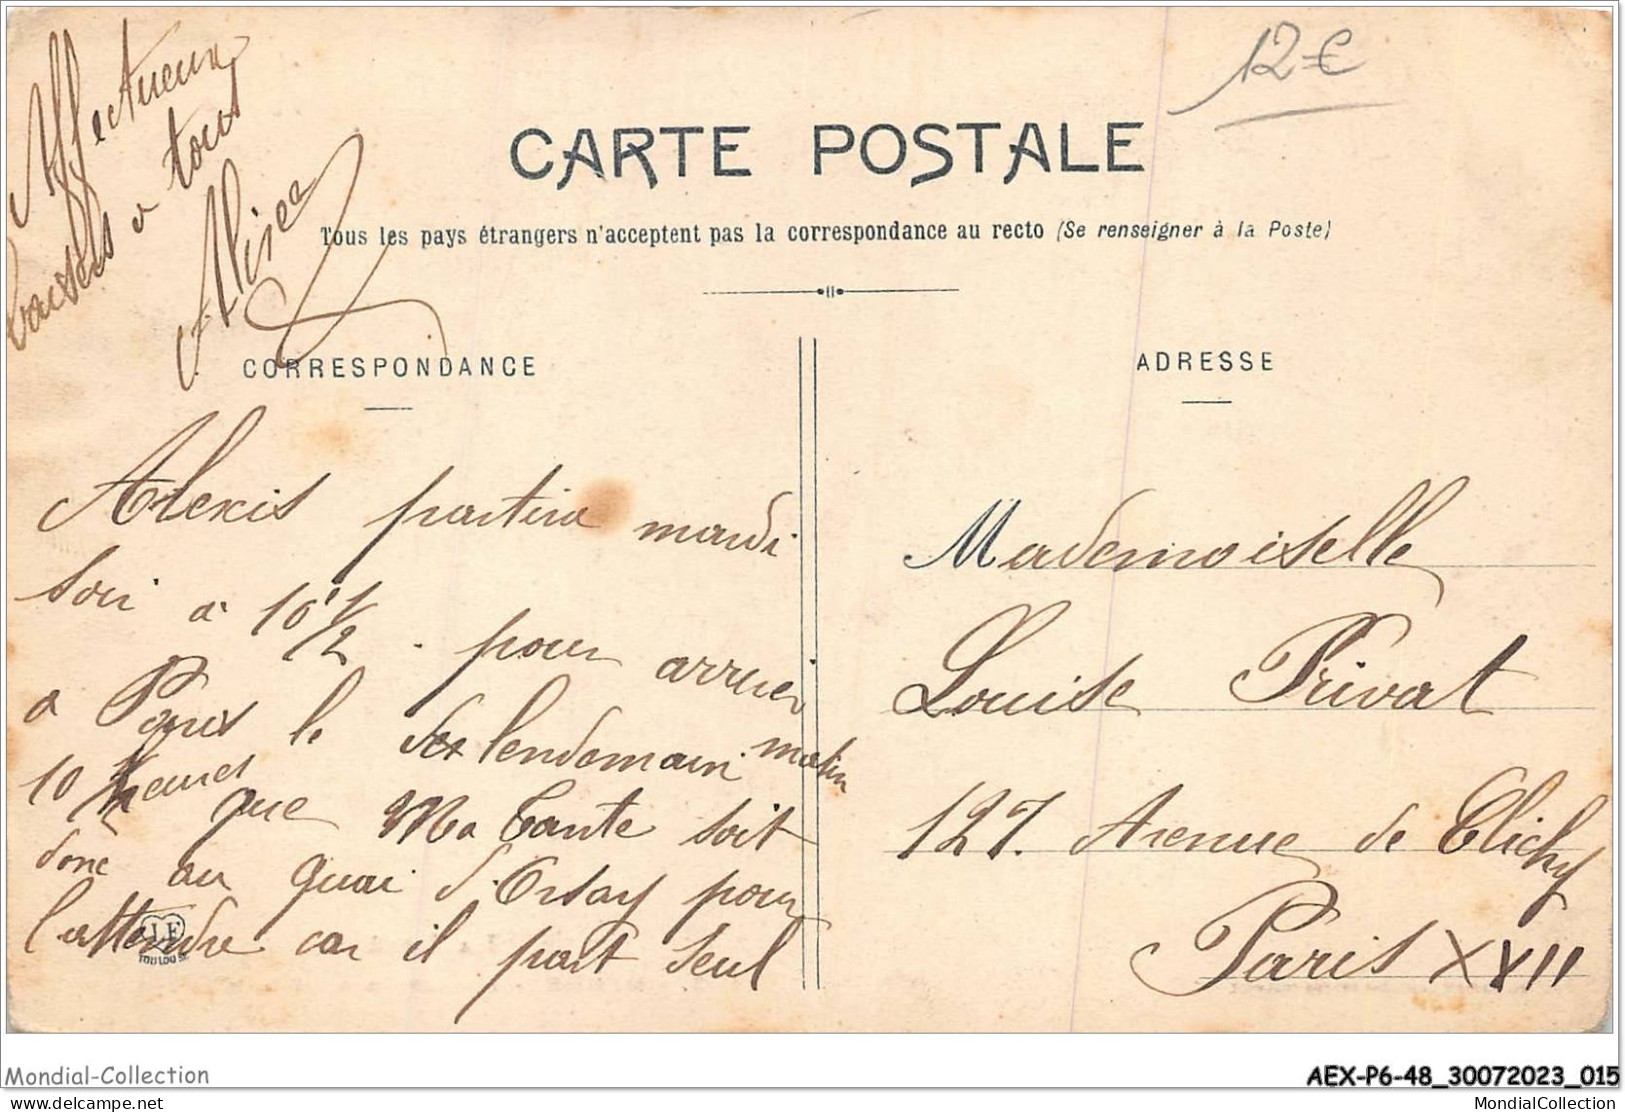 12 €
Affectueux
baisers a tous
CARTE POSTALE
Tous les pays étrangers n'acceptent pas la correspondance au recto (Se renseigner à la Poste)
CORRESPONDANCE
Alexis partira mardi
soir a 10 1/2 . pour arriver
a Paris le lendemain matin
10 heures que Ma tante soit
donc au quai d'Orsay pour
l'attendre car il part seul
J F
TOULOUSE
ADRESSE
Mademoiselle
Louise Privat
127. Avenue de Clichy
Paris XVII
Mondial-Collection
AEX-P6-48_30072023_015
delcampe.net
MondialCollection